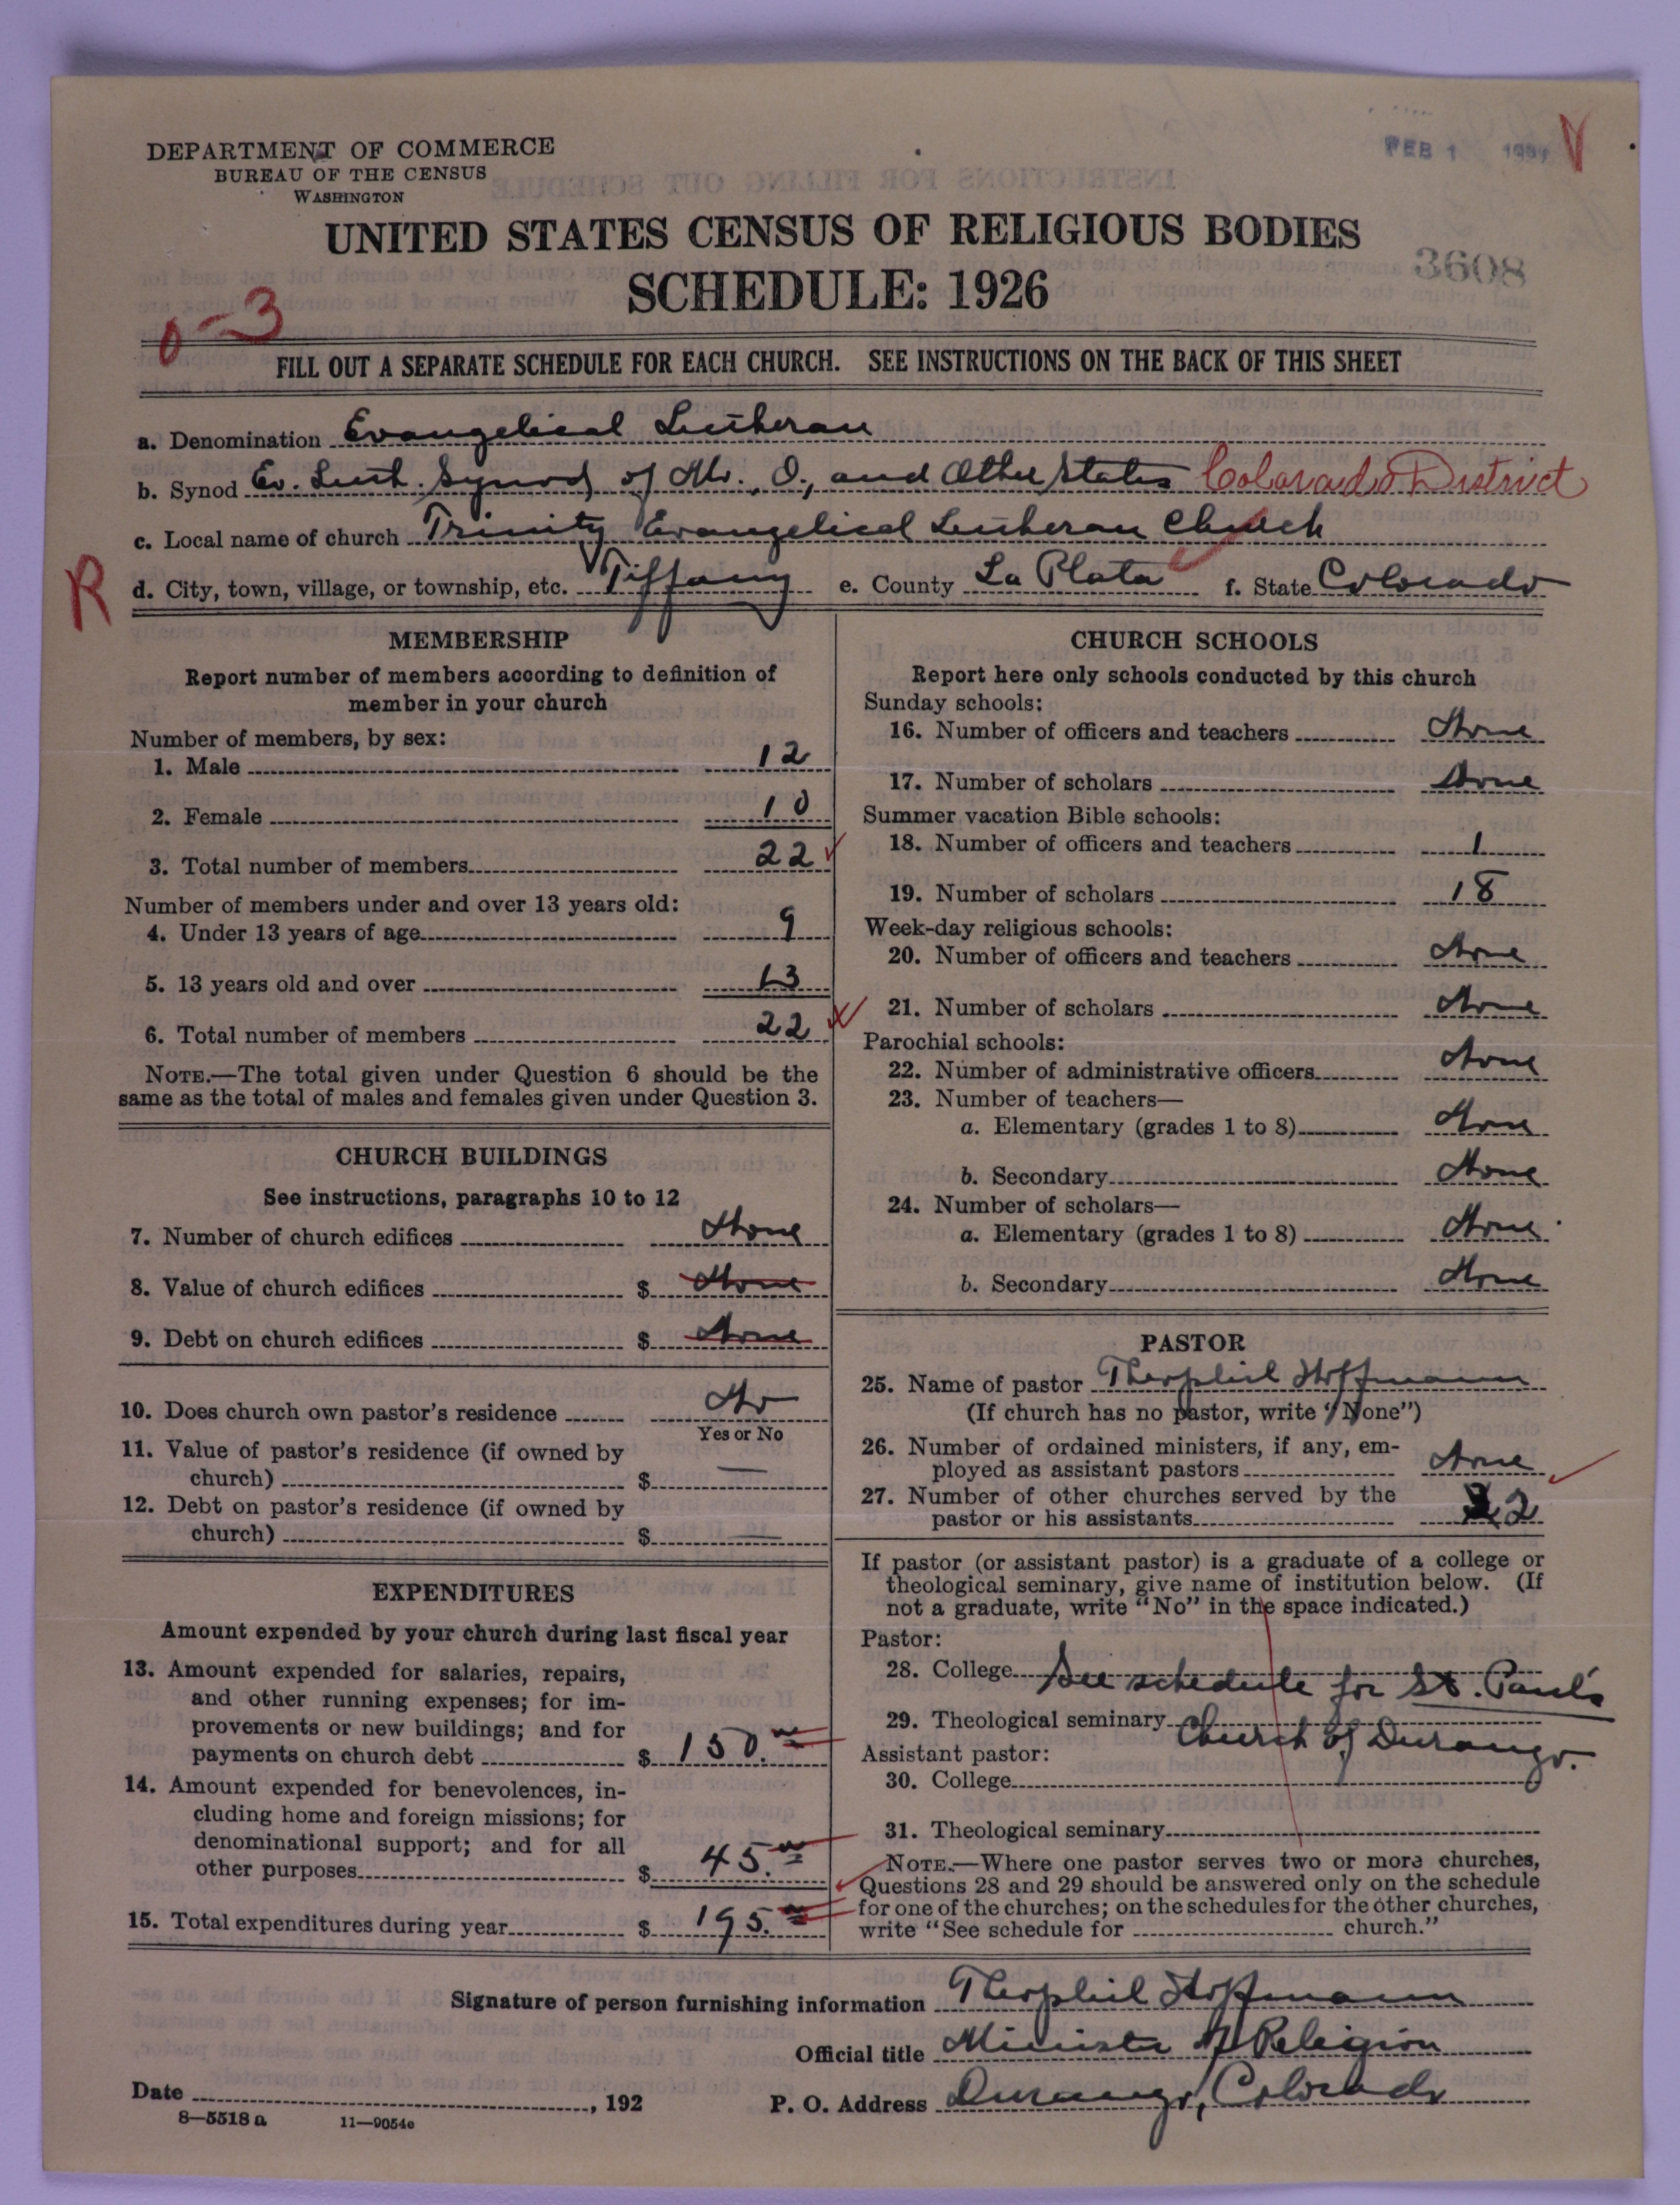 DEPARTMENT OF COMMERCE
BUREAU OF THE CENSUS
WASHINGTON
FEB 1
3608
UNITED STATES CENSUS OF RELIGIOUS BODIES
SCHEDULE: 1926
0-3
FILL OUT A SEPARATE SCHEDULE FOR EACH CHURCH. SEE INSTRUCTIONS ON THE BACK OF THIS SHEET
a. Denomination Evangelical Lutheran
b. Synod Ev. Luth. Synod of Mo., O., and Other States Colorado District
c. Local name of church Trinity Evangelical Lutheran Church
R
d. City, town, village, or township, etc. Tiffany e. County La Plata f. State Colorado
MEMBERSHIP
Report number of members according to definition of
member in your church
Number of members, by sex:
1. Male 12
2. Female 10
3. Total number of members 22
Number of members under and over 13 years old:
4. Under 13 years of age 9
5. 13 years old and over 13
6. Total number of members 22
NOTE.—The total given under Question 6 should be the
same as the total of males and females given under Question 3.
CHURCH BUILDINGS
See instructions, paragraphs 10 to 12
7. Number of church edifices None
8. Value of church edifices $ None
9. Debt on church edifices $ None
10. Does church own pastor's residence No
Yes or No
11. Value of pastor's residence (if owned by
church) $ —
12. Debt on pastor's residence (if owned by
church) $ —
EXPENDITURES
Amount expended by your church during last fiscal year
13. Amount expended for salaries, repairs,
and other running expenses; for im-
provements or new buildings; and for
payments on church debt $ 150.00
14. Amount expended for benevolences, in-
cluding home and foreign missions; for
denominational support; and for all
other purposes $ 45.00
15. Total expenditures during year $ 195.00
CHURCH SCHOOLS
Report here only schools conducted by this church
Sunday schools:
16. Number of officers and teachers None
17. Number of scholars None
Summer vacation Bible schools:
18. Number of officers and teachers 1
19. Number of scholars 18
Week-day religious schools:
20. Number of officers and teachers None
21. Number of scholars None
Parochial schools:
22. Number of administrative officers None
23. Number of teachers—
a. Elementary (grades 1 to 8) None
b. Secondary None
24. Number of scholars—
a. Elementary (grades 1 to 8) None
b. Secondary None
PASTOR
25. Name of pastor Theophil Hoffmann
(If church has no pastor, write "None")
26. Number of ordained ministers, if any, em-
ployed as assistant pastors None
27. Number of other churches served by the
pastor or his assistants 2
If pastor (or assistant pastor) is a graduate of a college or
theological seminary, give name of institution below. (If
not a graduate, write "No" in the space indicated.)
Pastor:
28. College See schedule for St. Paul's
29. Theological seminary Church of Durango.
Assistant pastor:
30. College
31. Theological seminary
NOTE.—Where one pastor serves two or more churches,
Questions 28 and 29 should be answered only on the schedule
for one of the churches; on the schedules for the other churches,
write "See schedule for church."
Signature of person furnishing information Theophil Hoffmann
Official title Minister of Religion
Date , 192 P. O. Address Durango, Colorado
8—5518 a 11—9054e